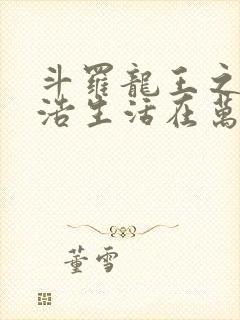 斗羅龍王之
浩生活在萬
董雪